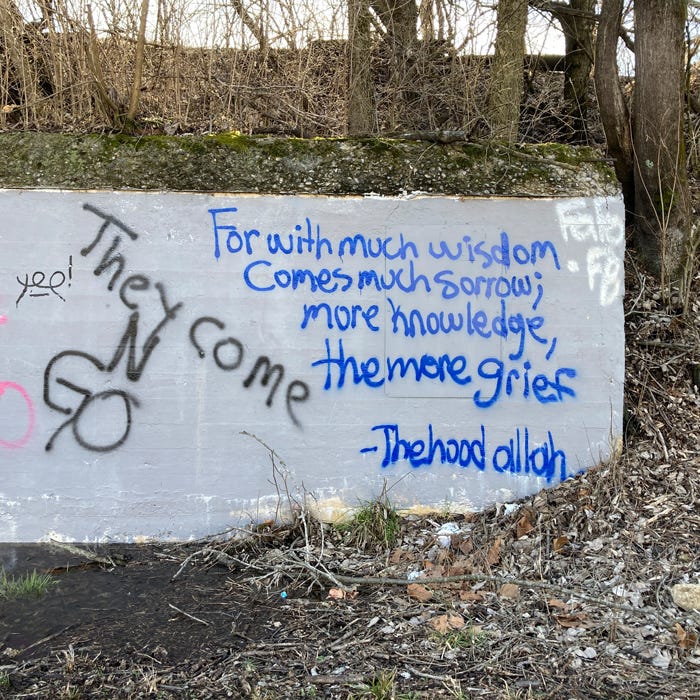 yee!
They come
N
GO
For with much wisdom
Comes much sorrow;
more knowledge,
the more grief
-Thehood allah